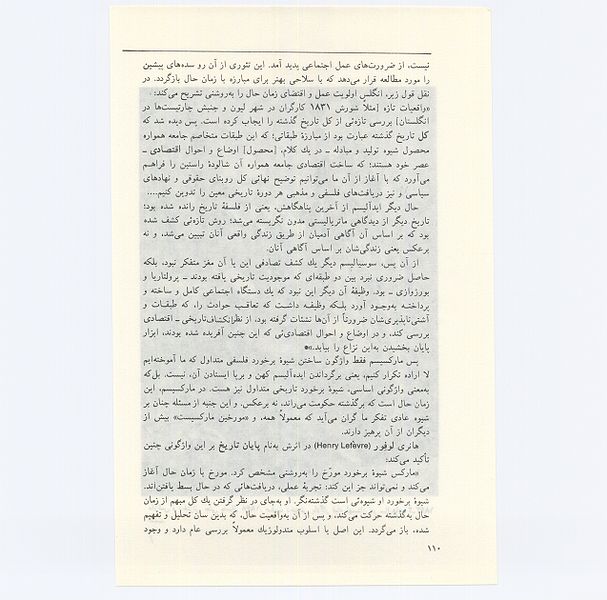 نیست، از ضرورت‌های عمل اجتماعی پدید آمد. این تئوری از آن رو سده‌های پیشین
را مورد مطالعه قرار می‌دهد که با سلاحی بهتر برای مبارزه با زمان حال بازگردد. در
نقل قول زیر، انگلس اولویت عمل و اقتضای زمان حال را به‌روشنی تشریح می‌کند:
«واقعیات تازه [مثلاً شورش ۱۸۳۱ کارگران در شهر لیون و جنبش چارتیست‌ها در
انگلستان] بررسی تازه‌ئی از کل تاریخ گذشته را ایجاب کرده است. پس دیده شد که
کل تاریخ گذشته عبارت بود از مبارزهٔ طبقاتی؛ که این طبقات متخاصم جامعه همواره
محصول شیوه تولید و مبادله ــ در یك کلام، [محصول] اوضاع و احوال اقتصادی ــ
عصر خود هستند؛ که ساخت اقتصادی جامعه همواره آن شالودهٔ راستین را فراهم
می‌آورد که با آغاز از آن ما می‌توانیم توضیح نهائی کل روبنای حقوقی و نهادهای
سیاسی و نیز دریافت‌های فلسفی و مذهبی هر دورهٔ تاریخی معین را تدوین کنیم....
حال دیگر ایدآلیسم از آخرین پناهگاهش، یعنی از فلسفهٔ تاریخ رانده شده بود؛
تاریخ دیگر از دیدگاهی ماتریالیستی مدون نگریسته می‌شد؛ روش تازه‌ئی کشف شده
بود که بر اساس آن آگاهی آدمیان از طریق زندگی واقعی آنان تبیین می‌شد، و نه
برعکس یعنی زندگی‌شان بر اساس آگاهی آنان.
از آن پس، سوسیالیسم دیگر یك کشف تصادفی این یا آن مغز متفکر نبود، بلکه
حاصل ضروری نبرد بین دو طبقه‌ای که موجودیت تاریخی یافته بودند ــ پرولتاریا و
بورژوازی ــ بود. وظیفهٔ آن دیگر این نبود که یك دستگاه اجتماعی کامل و ساخته و
پرداخته به‌وجود آورد بلکه وظیفه داشت که تعاقب حوادث را، که طبقات و
آشتی‌ناپذیری‌شان ضرورتاً از آن‌ها نشئات گرفته بود، از نظر انکشاف تاریخی ــ اقتصادی
بررسی کند. و در اوضاع و احوال اقتصادی‌ئی که این چنین آفریده شده بودند، ابزار
پایان بخشیدن به‌این نزاع را بیابد.»*
پس مارکسیسم فقط واژگون ساختن شیوهٔ برخورد فلسفی متداول که ما آموخته‌ایم
لا اراده تکرار کنیم، یعنی برگرداندن ایده‌آلیسم کهن و برپا ایستادن آن، نیست. بل‌که
به‌معنی واژگونی اساسی، شیوهٔ برخورد تاریخی متداول نیز هست. در مارکسیسم، این
زمان حال است که برگذشته حکومت می‌راند، نه برعکس. و این جنبه از مسئله چنان بر
شیوه عادی تفکر ما گران می‌آید که معمولاً همه، و «مورخین مارکسیست» بیش از
دیگران از آن پرهیز دارند.
هانری لوفِور (Henri Lefèvre) در اثرش به‌نام پایان تاریخ بر این واژگونی چنین
تأکید می‌کند:
«مارکس شیوهٔ برخورد مورّخ را به‌روشنی مشخص کرد. مورخ با زمان حال آغاز
می‌کند و نمی‌تواند جز این کند: تجربهٔ عملی، دریافت‌هائی که در حال بسط یافتن‌اند.
شیوهٔ برخورد او شیوه‌ئی است گذشته‌نگر. او به‌جای در نظر گرفتن یك کل مبهم از زمان
حال به‌گذشته حرکت می‌کند، و پس از آن به‌واقعیت حال، که بدین سان تحلیل و تفهیم
شده، باز می‌گردد. این اصل یا اسلوب متدولوژیك معمولاً بررسی عام دارد و وجود
۱۱۰